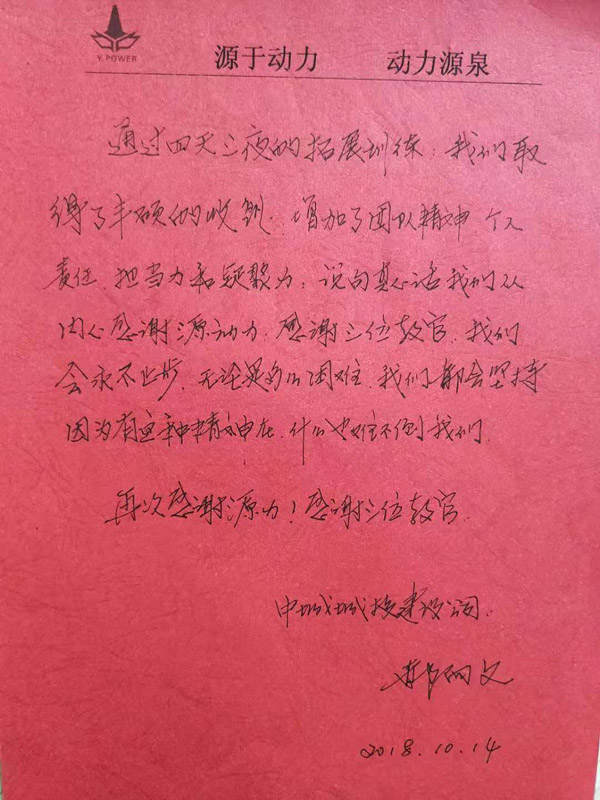 Y POWER
源于动力 动力源泉
通过四天三夜的拓展训练,我们取
得了丰硕的收获.增加了团队精神,个人
责任,担当力和凝聚力,说句真心话我们从
内心感谢源动力.感谢三位教官,我们
会永不止步,无论是多么困难,我们都会坚持
因为有这种精神在.什么也难不倒我们.
再次感谢源动力!感谢三位教官.
中城城投建设公司.
文
2018.10.14